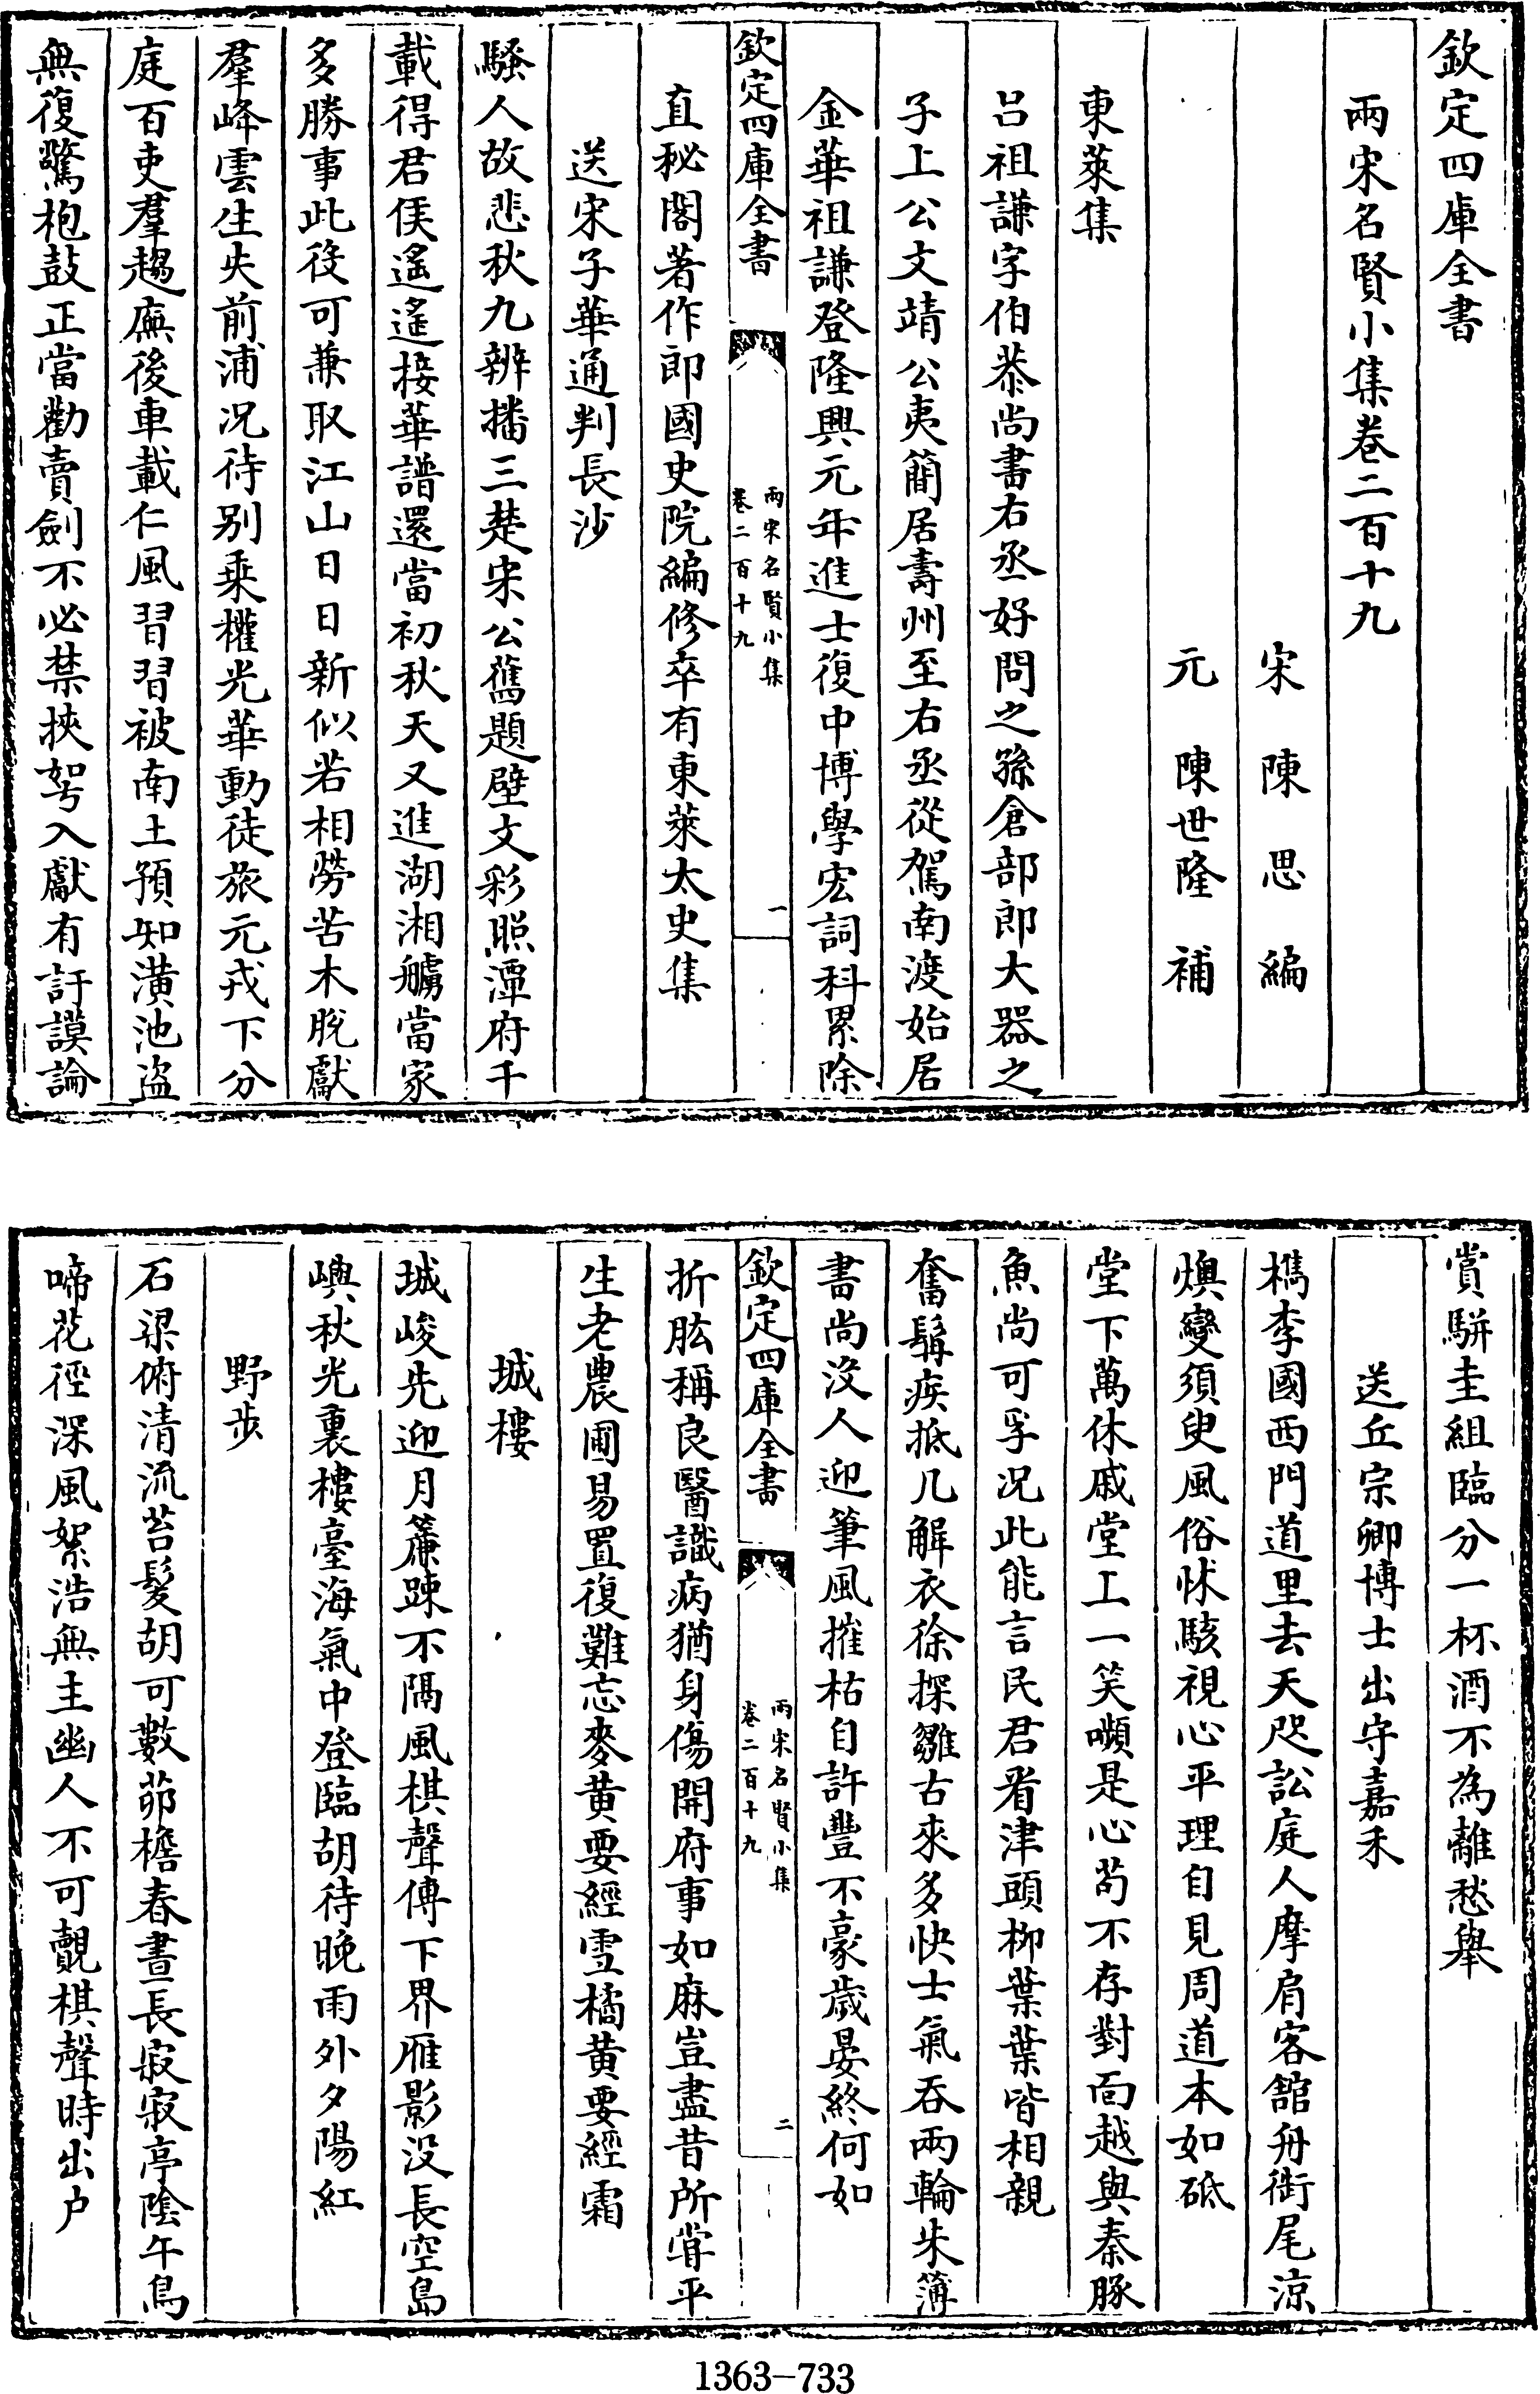 欽定四庫全書
兩宋名賢小集卷二百十九
宋 陳 思 編
元 陳世隆 補
東萊集
吕祖謙字伯恭尚書右丞好問之孫倉部郎大器之
子上公文靖公夷簡居壽州至右丞從駕南渡始居
金華祖謙登隆興元年進士復中博學宏詞科累除
欽定四庫全書
兩宋名賢小集
卷二百十九
一
直秘閣著作郎國史院編修卒有東萊太史集
送宋子華通判長沙
騷人故悲秋九辨播三楚宋公舊題壁文彩照潭府千
載得君侯遙遙接華譜還當初秋天又進湖湘艣當家
多勝事此役可兼取江山日日新似若相勞苦木脫獻
羣峰雲生失前浦况待别乘權光華動徒旅元戎下分
庭百吏羣趨廡後車載仁風習習被南土預知潢池盗
無復驚枹鼓正當勸賣劍不必禁挾弩入獻有訏謨論
賞駢圭組臨分一杯酒不為離愁舉
送丘宗卿博士出守嘉禾
檇李國西門道里去天咫訟庭人摩肩客舘舟銜尾涼
燠變須臾風俗怵駭視心平理自見周道本如砥
堂下萬休戚堂工一笑嚬是心苟不存對面越與秦豚
魚尚可孚况此能言民君看津頭柳葉葉皆相親
奮髯疾抵几解衣徐探雛古來多快士氣吞兩輪朱簿
書尚沒人迎筆風摧枯自許豐不豪歲晏終何如
欽定四庫全書
兩宋名賢小集
卷二百十九
二
折肱稱良醫識病猶身傷開府事如麻豈盡昔所甞平
生老農圃易置復難忘麥黄要經雪橘黄要經霜
城樓
城峻先迎月簾踈不隔風棋聲傳下界雁影没長空島
嶼秋光裏樓臺海氣中登臨胡待晚雨外夕陽紅
野步
石梁俯清流苔髮胡可數茆檐春晝長寂寂亭陰午鳥
啼花徑深風絮浩無主幽人不可覿棋聲時出户
1363-733